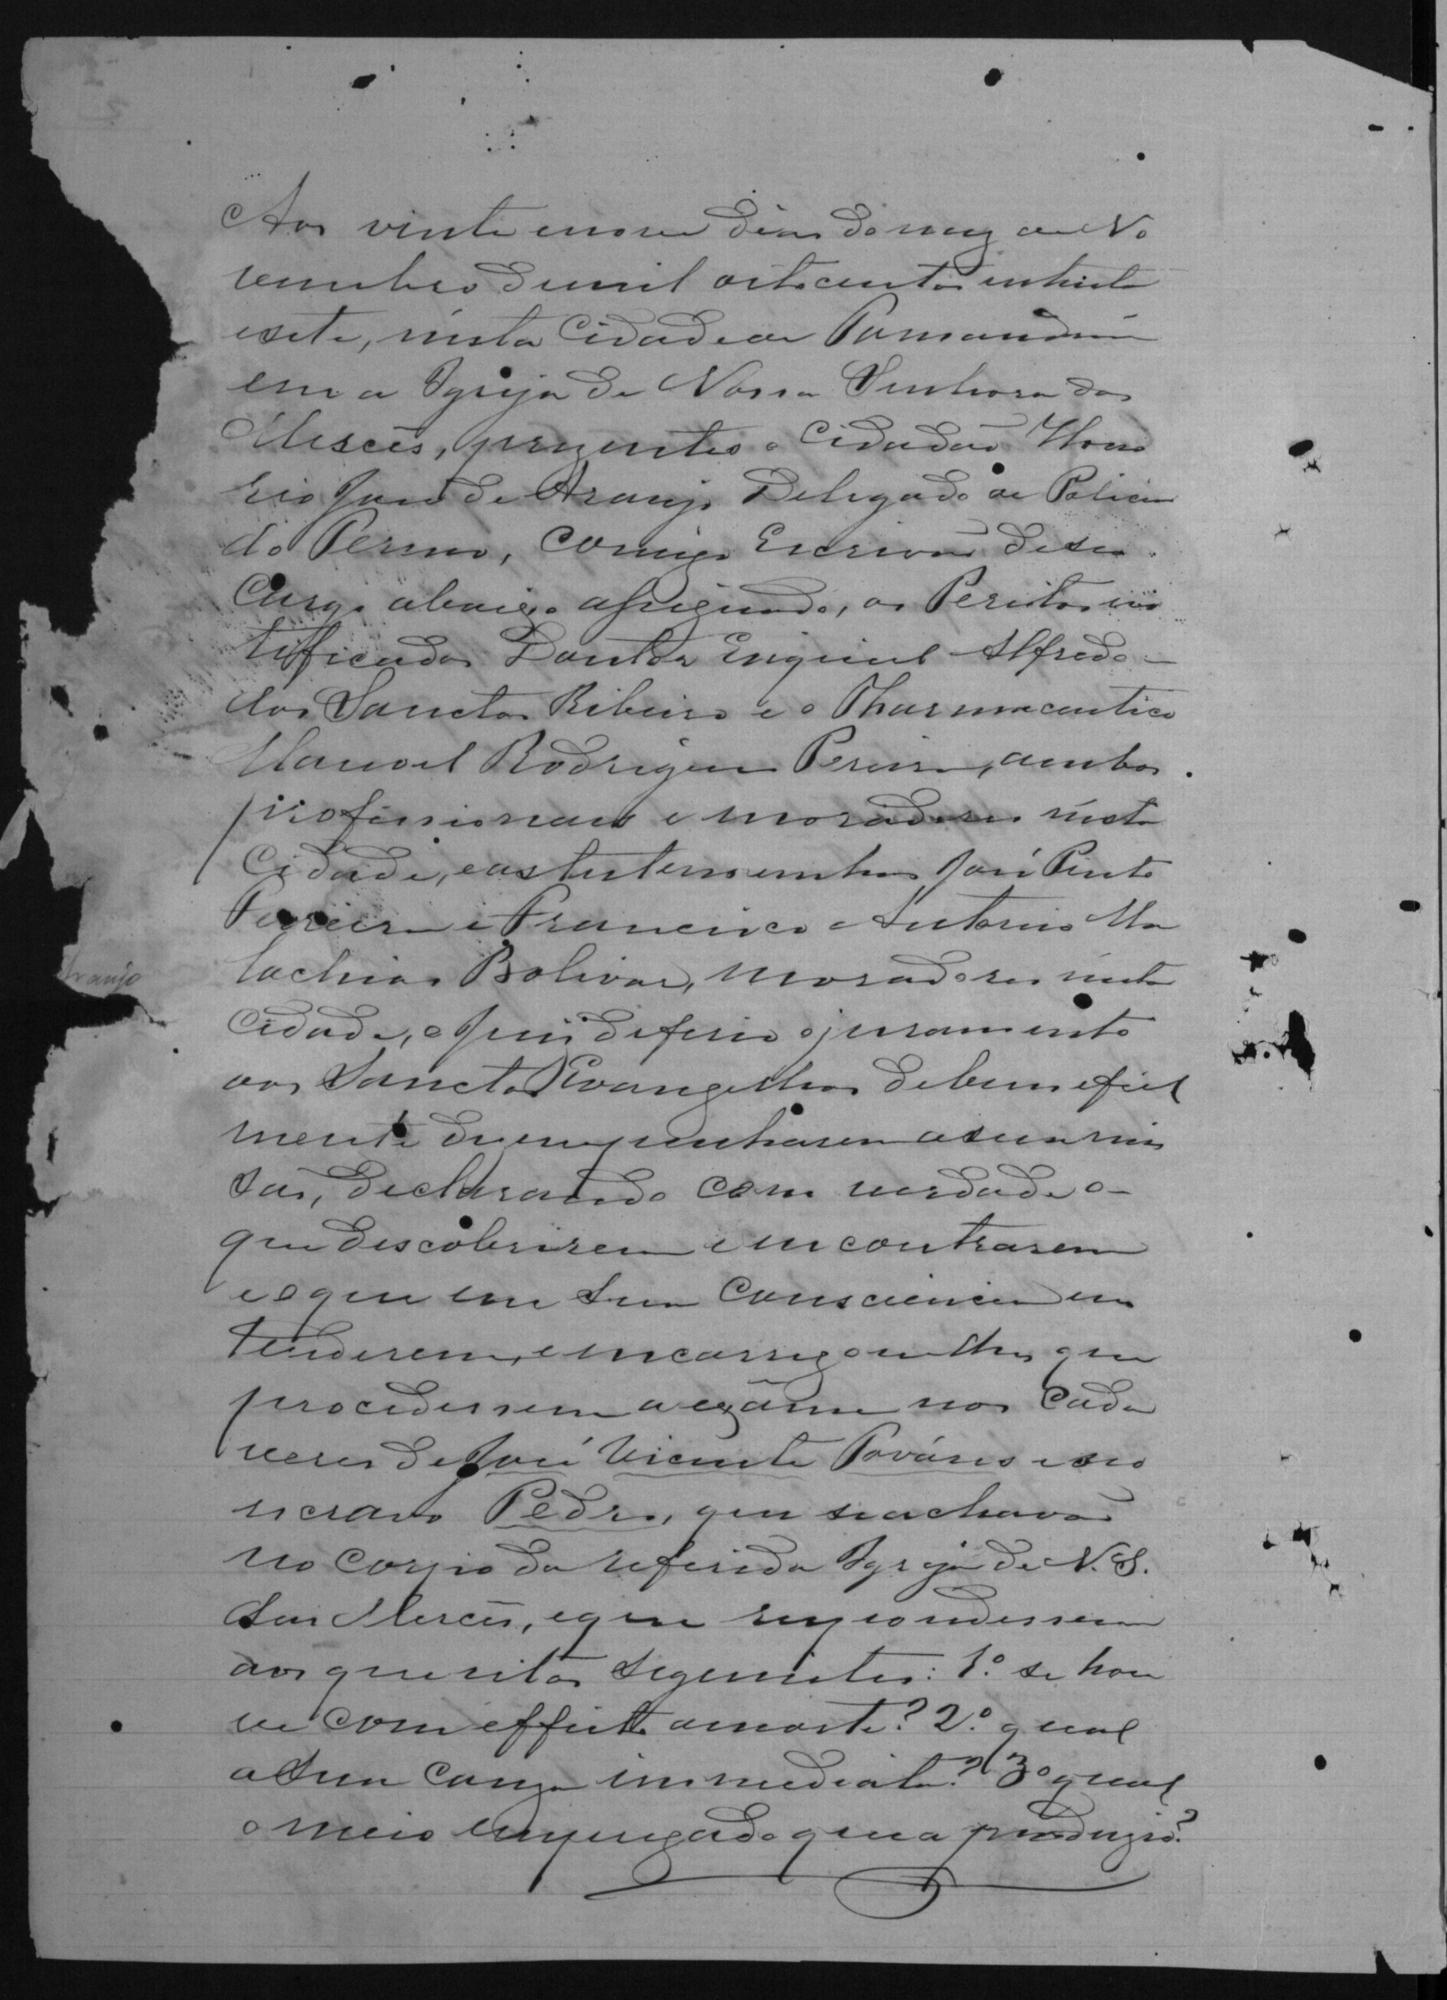 Aos vinte e nove dias do mez de No
vembro de mil oito centos e trinta
e sete, nesta Cidade de
em a Igreja de Nossa Senhora das
Mercês, prezentes o Cidadão Hono
rio José de Araujo Delegado de Policia
do Termo, comigo Escrivão de seu
Cargo abaixo assignado, os Peritos no
tificados Doutor Alfredo
dos Sanctos Ribeiro e o Pharmaceutico
Manoel Rodrigues Pereira, ambos
profissionaes e moradores nesta
Cidade, e as testemunhas José Pinto
Pereira e Francisco Antonio Ma
lachias Bolivar, moradores nesta
Cidade, o Juiz deferio o juramento
aos Sanctos Evangelhos de bem e fiel
mente desempenharem a sua mis
são, declarando com verdade o
que descobrirem e encontrarem
e o que em sua consciencia en
tenderem, e encarregou-lhes que
procedessem a exâme nos cada
veres de José Vicente e seo
escravo Pedro, que se achavão
no corpo da referida Igreja de N. S.
das Mercês, e que respondessem
aos quesitos seguintes: 1.º se hou
ve com effeito a morte? 2.º qual
a sua cauza immediata? 3º qual
o meio empregado que a produzio?
Araujo